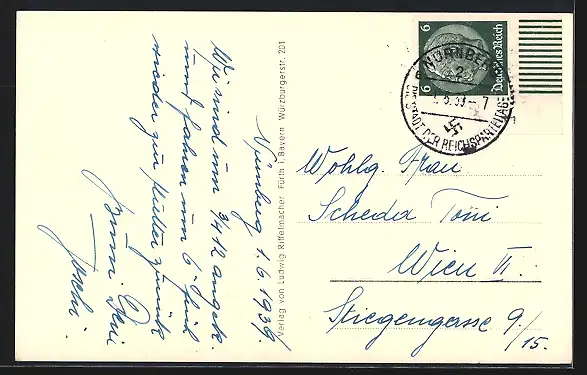 Nürnberg 1.6.1939.
Wir sind um 3/4 12 angek.
und fahren um 6 Uhr
wieder zur Mutter zurück
Verlag von Ludwig Riffelmacher Fürth i. Bayern Würzburgerstr. 201
6 6
Deutsches Reich
NÜRNBERG
2
6.39-7
DIE STADT DER REICHSPARTEITAGE
Wohlg. Frau
Scheder Toni
Wien VI.
Stiegengasse 9/
15.